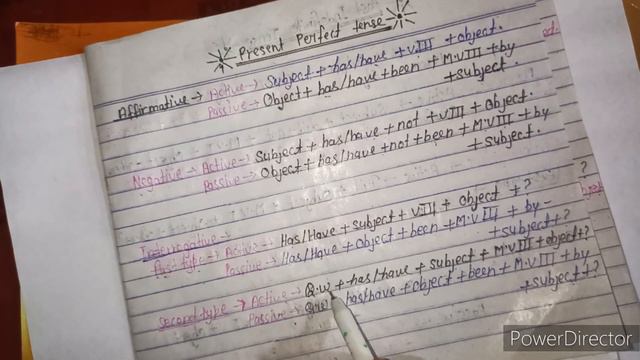 Present Perfect tense
Affirmative → Active → Subject + has/have + VIII + object.
Passive → Object + has/have + been + M.VIII + by
+ subject.
Negative → Active → Subject + has/have + not + VIII + object.
Passive → Object + has/have + not + been + M.VIII + by
+ subject.
Interrogative →
type → Active → Has/Have + subject + VIII + object + ?
Passive → Has/Have + object + been + M.VIII + by -
+ subject + ?
Second type → Active → Q.W + has/have + subject + M.VIII + object + ?
Passive → has/have + object + been + M.VIII + by
+ subject + ?
PowerDirector